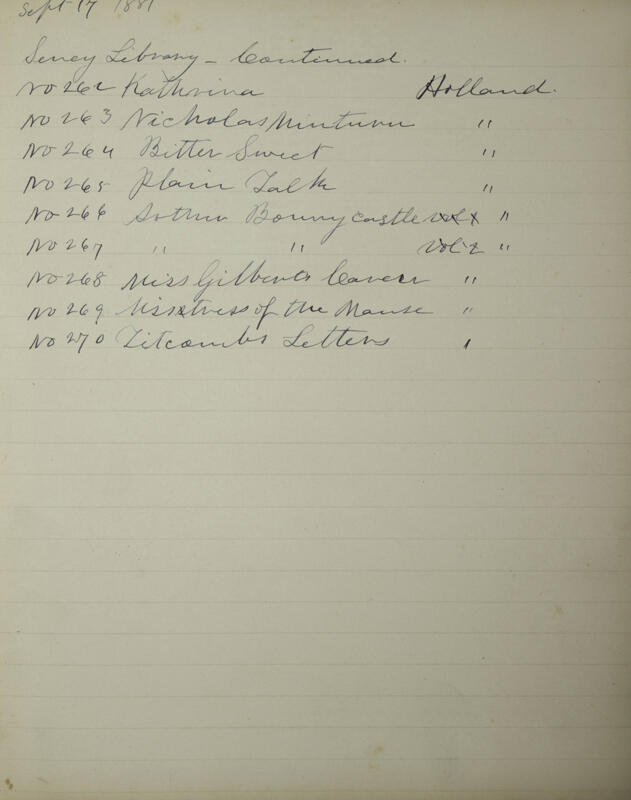 Sept 17 1881
Seney Library - Continued.
No 262 Kathrina Holland.
No 263 Nicholas Minturn "
No 264 Bitter Sweet "
No 265 Plain Talk "
No 266 Arthur Bonnycastle "
No 267 " " Vol 2 "
No 268 Miss Gilberts Career "
No 269 Misstress of the Manse "
No 270 Titcombs Letters "